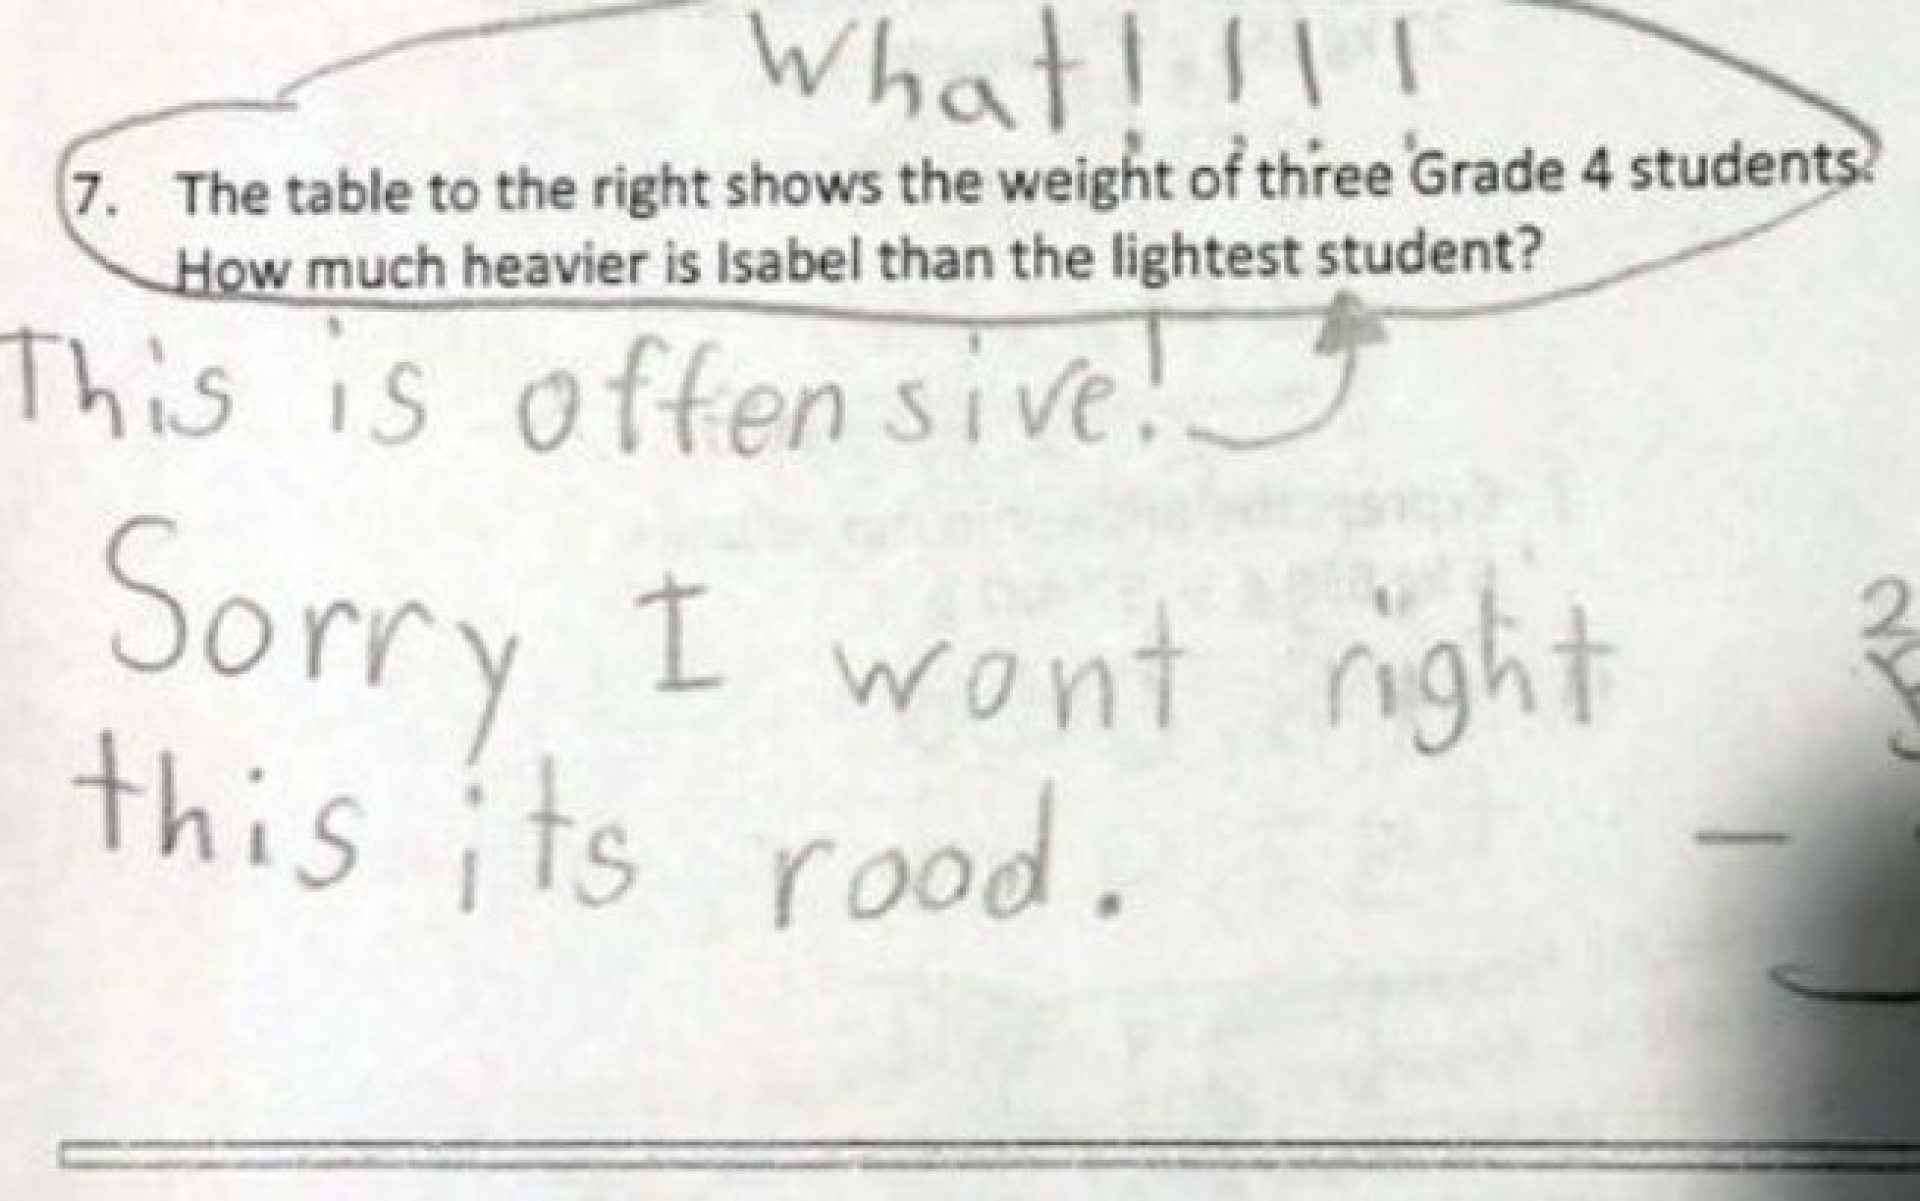 What!!!!
7. The table to the right shows the weight of three Grade 4 students.
How much heavier is Isabel than the lightest student?
This is offensive!
Sorry I wont right
this its rood.